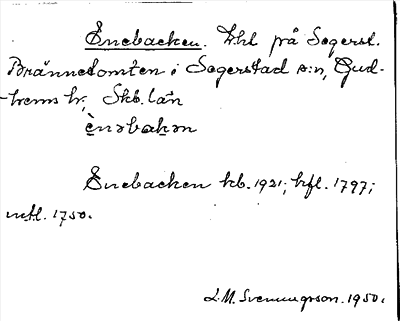 Enebacken. Lht på Segerst.
Brännetomten i Segerstad s:n, Gud-
hems hr, Skb. län
ènəbakən
Enebacken kb. 1921; hfl. 1797;
mtl. 1750.
L.M. Svenungsson. 1950.